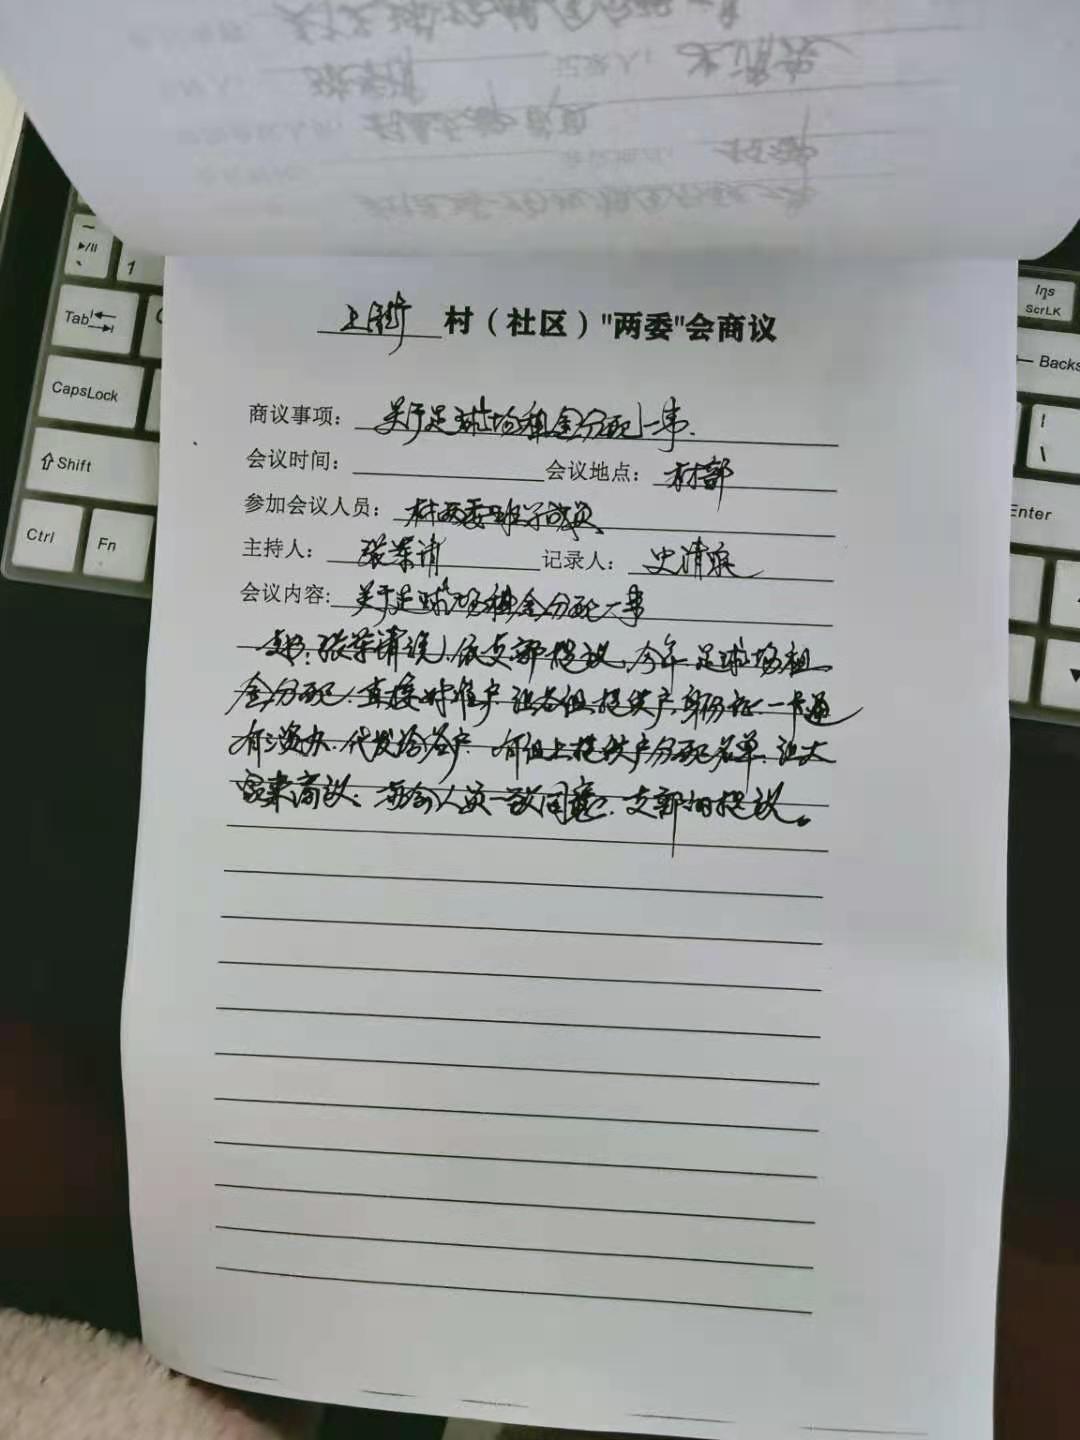 上街 村（社区）"两委"会商议
商议事项： 关于足球场租金分配一事.
会议时间： 会议地点： 村部
参加会议人员： 村两委班子成员
主持人： 张荣清 记录人： 史清
会议内容： 关于足球场租金分配一事
支书：张荣清说，依支部提议，今年足球场租
金分配，直接对准户，让各组提供户，身份证，一卡通
有三资办，代发给各户，有组上提供户分配名单，让大
家来商议：与会人员一致同意，支部的提议。
Tab
CapsLock
Shift
Ctrl
Fn
1
Ins
ScrLK
Backs
Enter